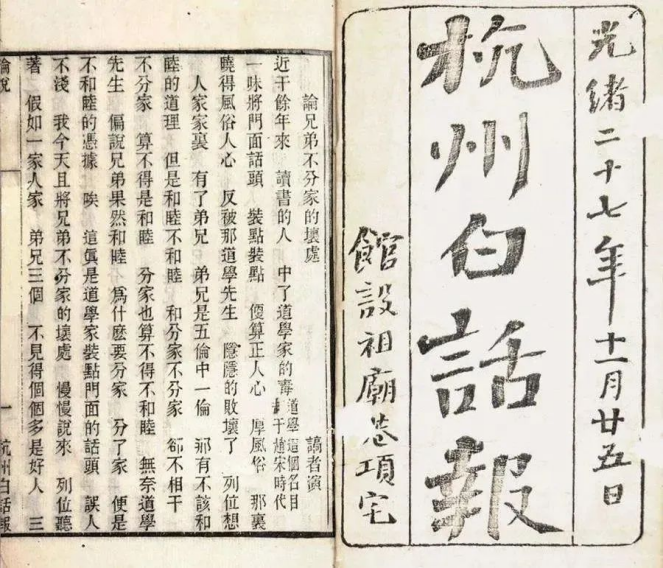 光緒二十七年十一月廿五日
杭州白話報
館設祖廟巷項宅
論兄弟不分家的壞處
謫者演
近千餘年來 讀書的人 中了道學家的毒 道學這個名目 起于趙宋時代
一味將門面話頭 裝點裝點 便算正人心 厚風俗 那裏
曉得風俗人心 反被那道學先生 隱隱的敗壞了 列位想
人家家裏 有了弟兄 弟兄是五倫中一倫 那有不該和
睦的道理 但是和睦不和睦 和分家不分家 卻不相干
不分家 算不得是和睦 分家也算不得不和睦 無奈道學
先生 偏說兄弟果然和睦 爲什麽要分家 分了家 便是
不和睦的憑據 唉 這眞是道學家裝點門面的話頭 誤人
不淺 我今天且將兄弟不分家的壞處 慢慢說來 列位聽
著 假如一家人家 弟兄三個 不見得個個多是好人 三
論說
一
杭州白話報